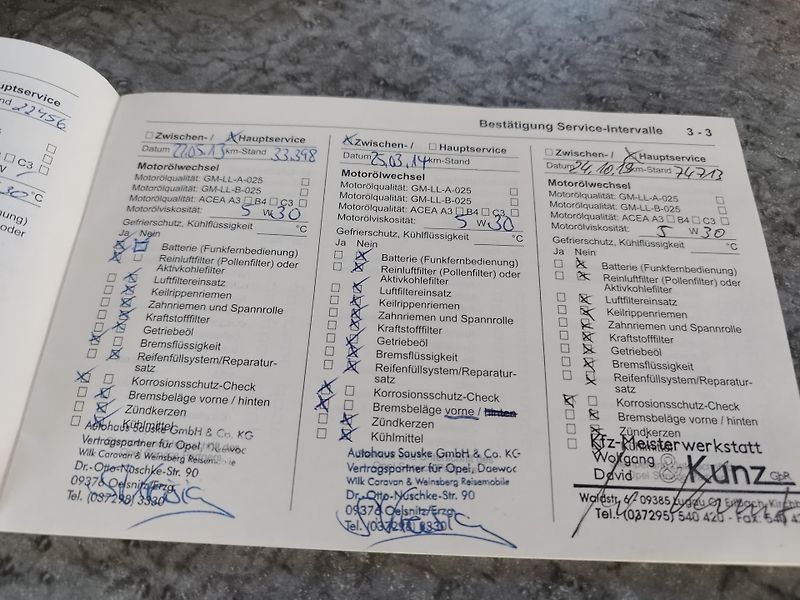 uptservice
22456
C3
°C
nfüllung)
oder
Bestätigung Service-Intervalle 3 - 3
Zwischen- / Hauptservice
Datum 22.05.13 km-Stand 33.398
Motorölwechsel
Motorölqualität: GM-LL-A-025
Motorölqualität: GM-LL-B-025
Motorölqualität: ACEA A3 B4 C3
Motorölviskosität: 5 W 30
Gefrierschutz, Kühlflüssigkeit °C
Ja Nein
Batterie (Funkfernbedienung)
Reinluftfilter (Pollenfilter) oder
Aktivkohlefilter
Luftfiltereinsatz
Keilrippenriemen
Zahnriemen und Spannrolle
Kraftstofffilter
Getriebeöl
Bremsflüssigkeit
Reifenfüllsystem/Reparatur-
satz
Korrosionsschutz-Check
Bremsbeläge vorne / hinten
Zündkerzen
Kühlmittel
Autohaus Sauske GmbH & Co. KG
Vertragspartner für Opel, Daewoo
Wilk Caravan & Weinsberg Reisemobile
Dr.-Otto-Nuschke-Str. 90
09376 Oelsnitz/Erzg.
Tel. (037298) 3330
Zwischen- / Hauptservice
Datum 25.03.14 km-Stand
Motorölwechsel
Motorölqualität: GM-LL-A-025
Motorölqualität: GM-LL-B-025
Motorölqualität: ACEA A3 B4 C3
Motorölviskosität: 5 W 30
Gefrierschutz, Kühlflüssigkeit °C
Ja Nein
Batterie (Funkfernbedienung)
Reinluftfilter (Pollenfilter) oder
Aktivkohlefilter
Luftfiltereinsatz
Keilrippenriemen
Zahnriemen und Spannrolle
Kraftstofffilter
Getriebeöl
Bremsflüssigkeit
Reifenfüllsystem/Reparatur-
satz
Korrosionsschutz-Check
Bremsbeläge vorne / hinten
Zündkerzen
Kühlmittel
Autohaus Sauske GmbH & Co. KG
Vertragspartner für Opel, Daewoo
Wilk Caravan & Weinsberg Reisemobile
Dr.-Otto-Nuschke-Str. 90
09376 Oelsnitz/Erzg.
Tel. (037298) 3330
Zwischen- / Hauptservice
Datum 24.10.19 km-Stand 74713
Motorölwechsel
Motorölqualität: GM-LL-A-025
Motorölqualität: GM-LL-B-025
Motorölqualität: ACEA A3 B4 C3
Motorölviskosität: 5 W 30
Gefrierschutz, Kühlflüssigkeit °C
Ja Nein
Batterie (Funkfernbedienung)
Reinluftfilter (Pollenfilter) oder
Aktivkohlefilter
Luftfiltereinsatz
Keilrippenriemen
Zahnriemen und Spannrolle
Kraftstofffilter
Getriebeöl
Bremsflüssigkeit
Reifenfüllsystem/Reparatur-
satz
Korrosionsschutz-Check
Bremsbeläge vorne / hinten
Zündkerzen
Kfz-Meisterwerkstatt
Wolfgang & David Kunz GbR
Waldstr. 6 09385 Lugau OT Erlbach-Kirchb
Tel.: (037295) 540 420 - Fax: 540 42